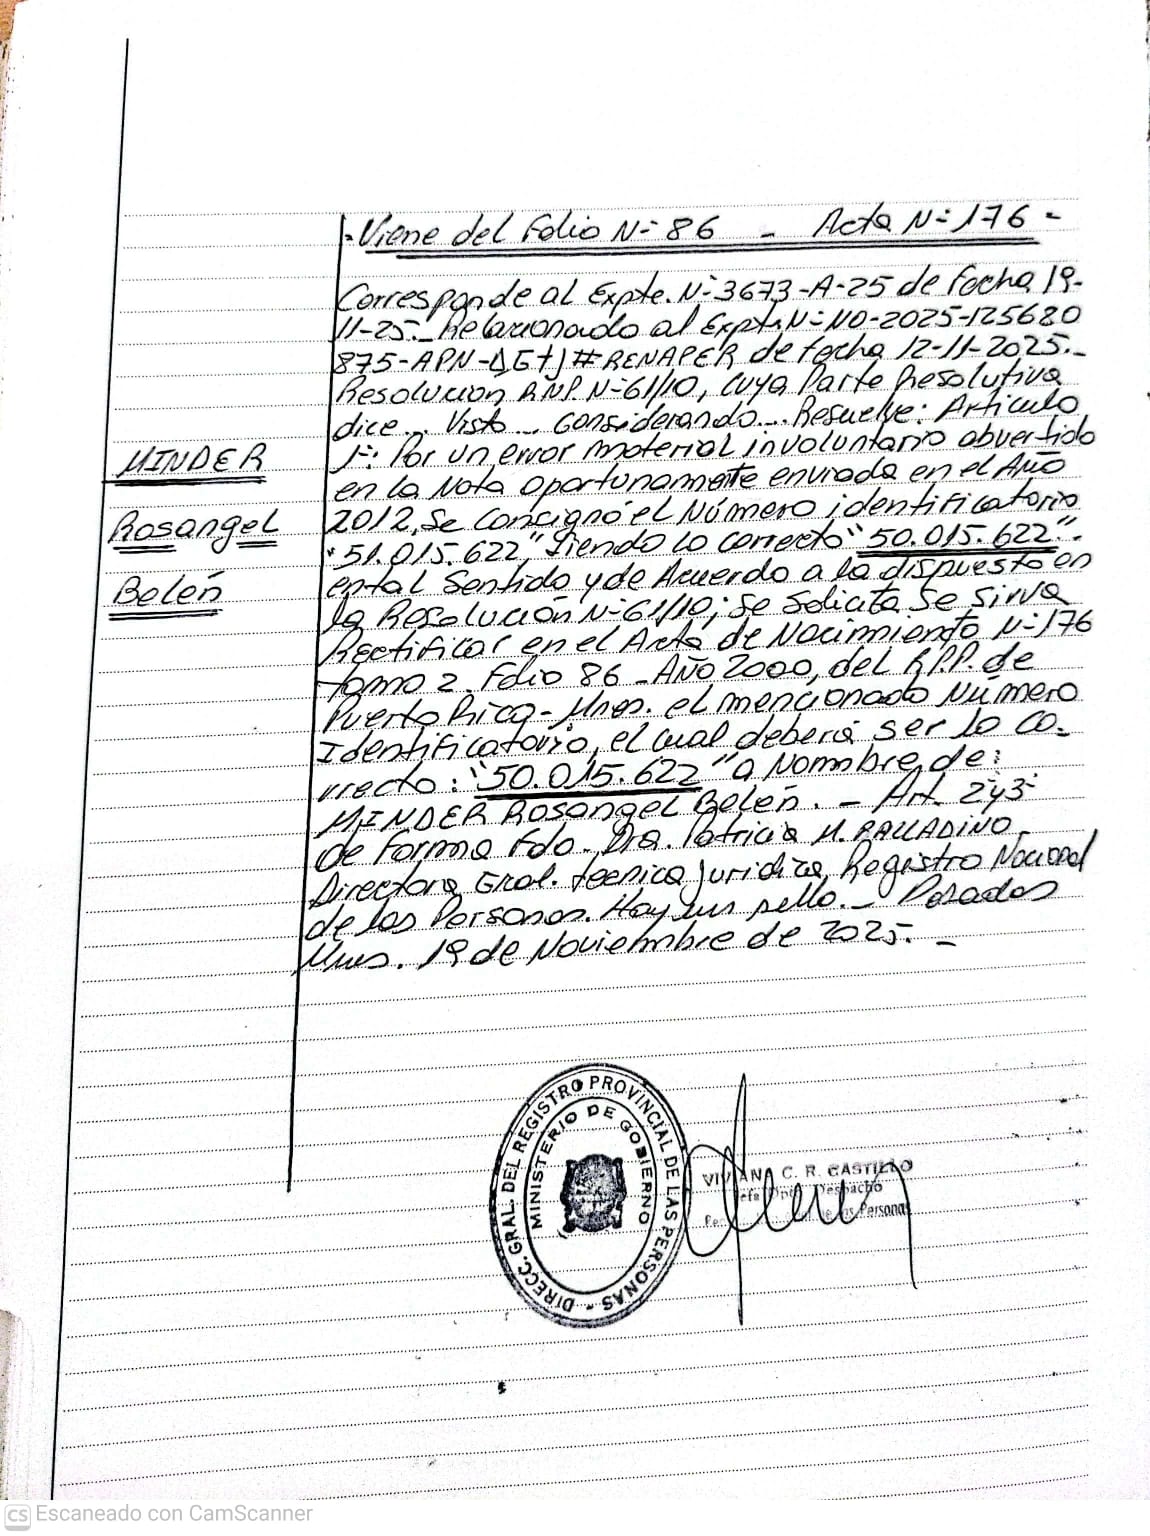 - Viene del Folio N= 86 - Acta N= 176 -
Corresponde al Expte. N= 3673-A-25 de fecha 19-
11-25._ Relacionado al Expte N= NO-2025-125680
875-APN-DGTJ#RENAPER de fecha 12-11-2025._
Resolucion RNP. N=61/10, cuya Parte Resolutiva
dice... Visto... Considerando... Resuelve: Articulo
1=: Por un error material involuntario abvertido
MINDER
en la Nota oportunamente enviada en el Año
2012, se concignó el Número identificatorio
Rosangel
"51.015.622" siendo lo correcto "50.015.622".
ental Sentido y de Acuerdo a la dispuesto en
Belén
la Resolución N=61/10; se Solicita se sirva
Rectificar en el Acta de Nacimiento N=176
Tomo 2. Folio 86 - Año 2000, del R.P.P. de
Puerto Rico - Mnes. el mencionado Número
Identificatorio, el cual deberia ser lo co-
rrecto: "50.015.622" a Nombre de:
MINDER Rosangel Belén. - Art. 2y3=
de Forma Fdo. Dra. Patricia M. PALLADINO
Directora Gral. tecnica Juridica, Registro Nacional
de las Personas. Hay un sello._ Posadas
Mnes. 19 de Noviembre de 2025. -
DIRECC. GRAL. DEL REGISTRO PROVINCIAL DE LAS PERSONAS -
MINISTERIO DE GOBIERNO
VIVIANA C. R. CASTILLO
Despacho
Personas
CS Escaneado con CamScanner